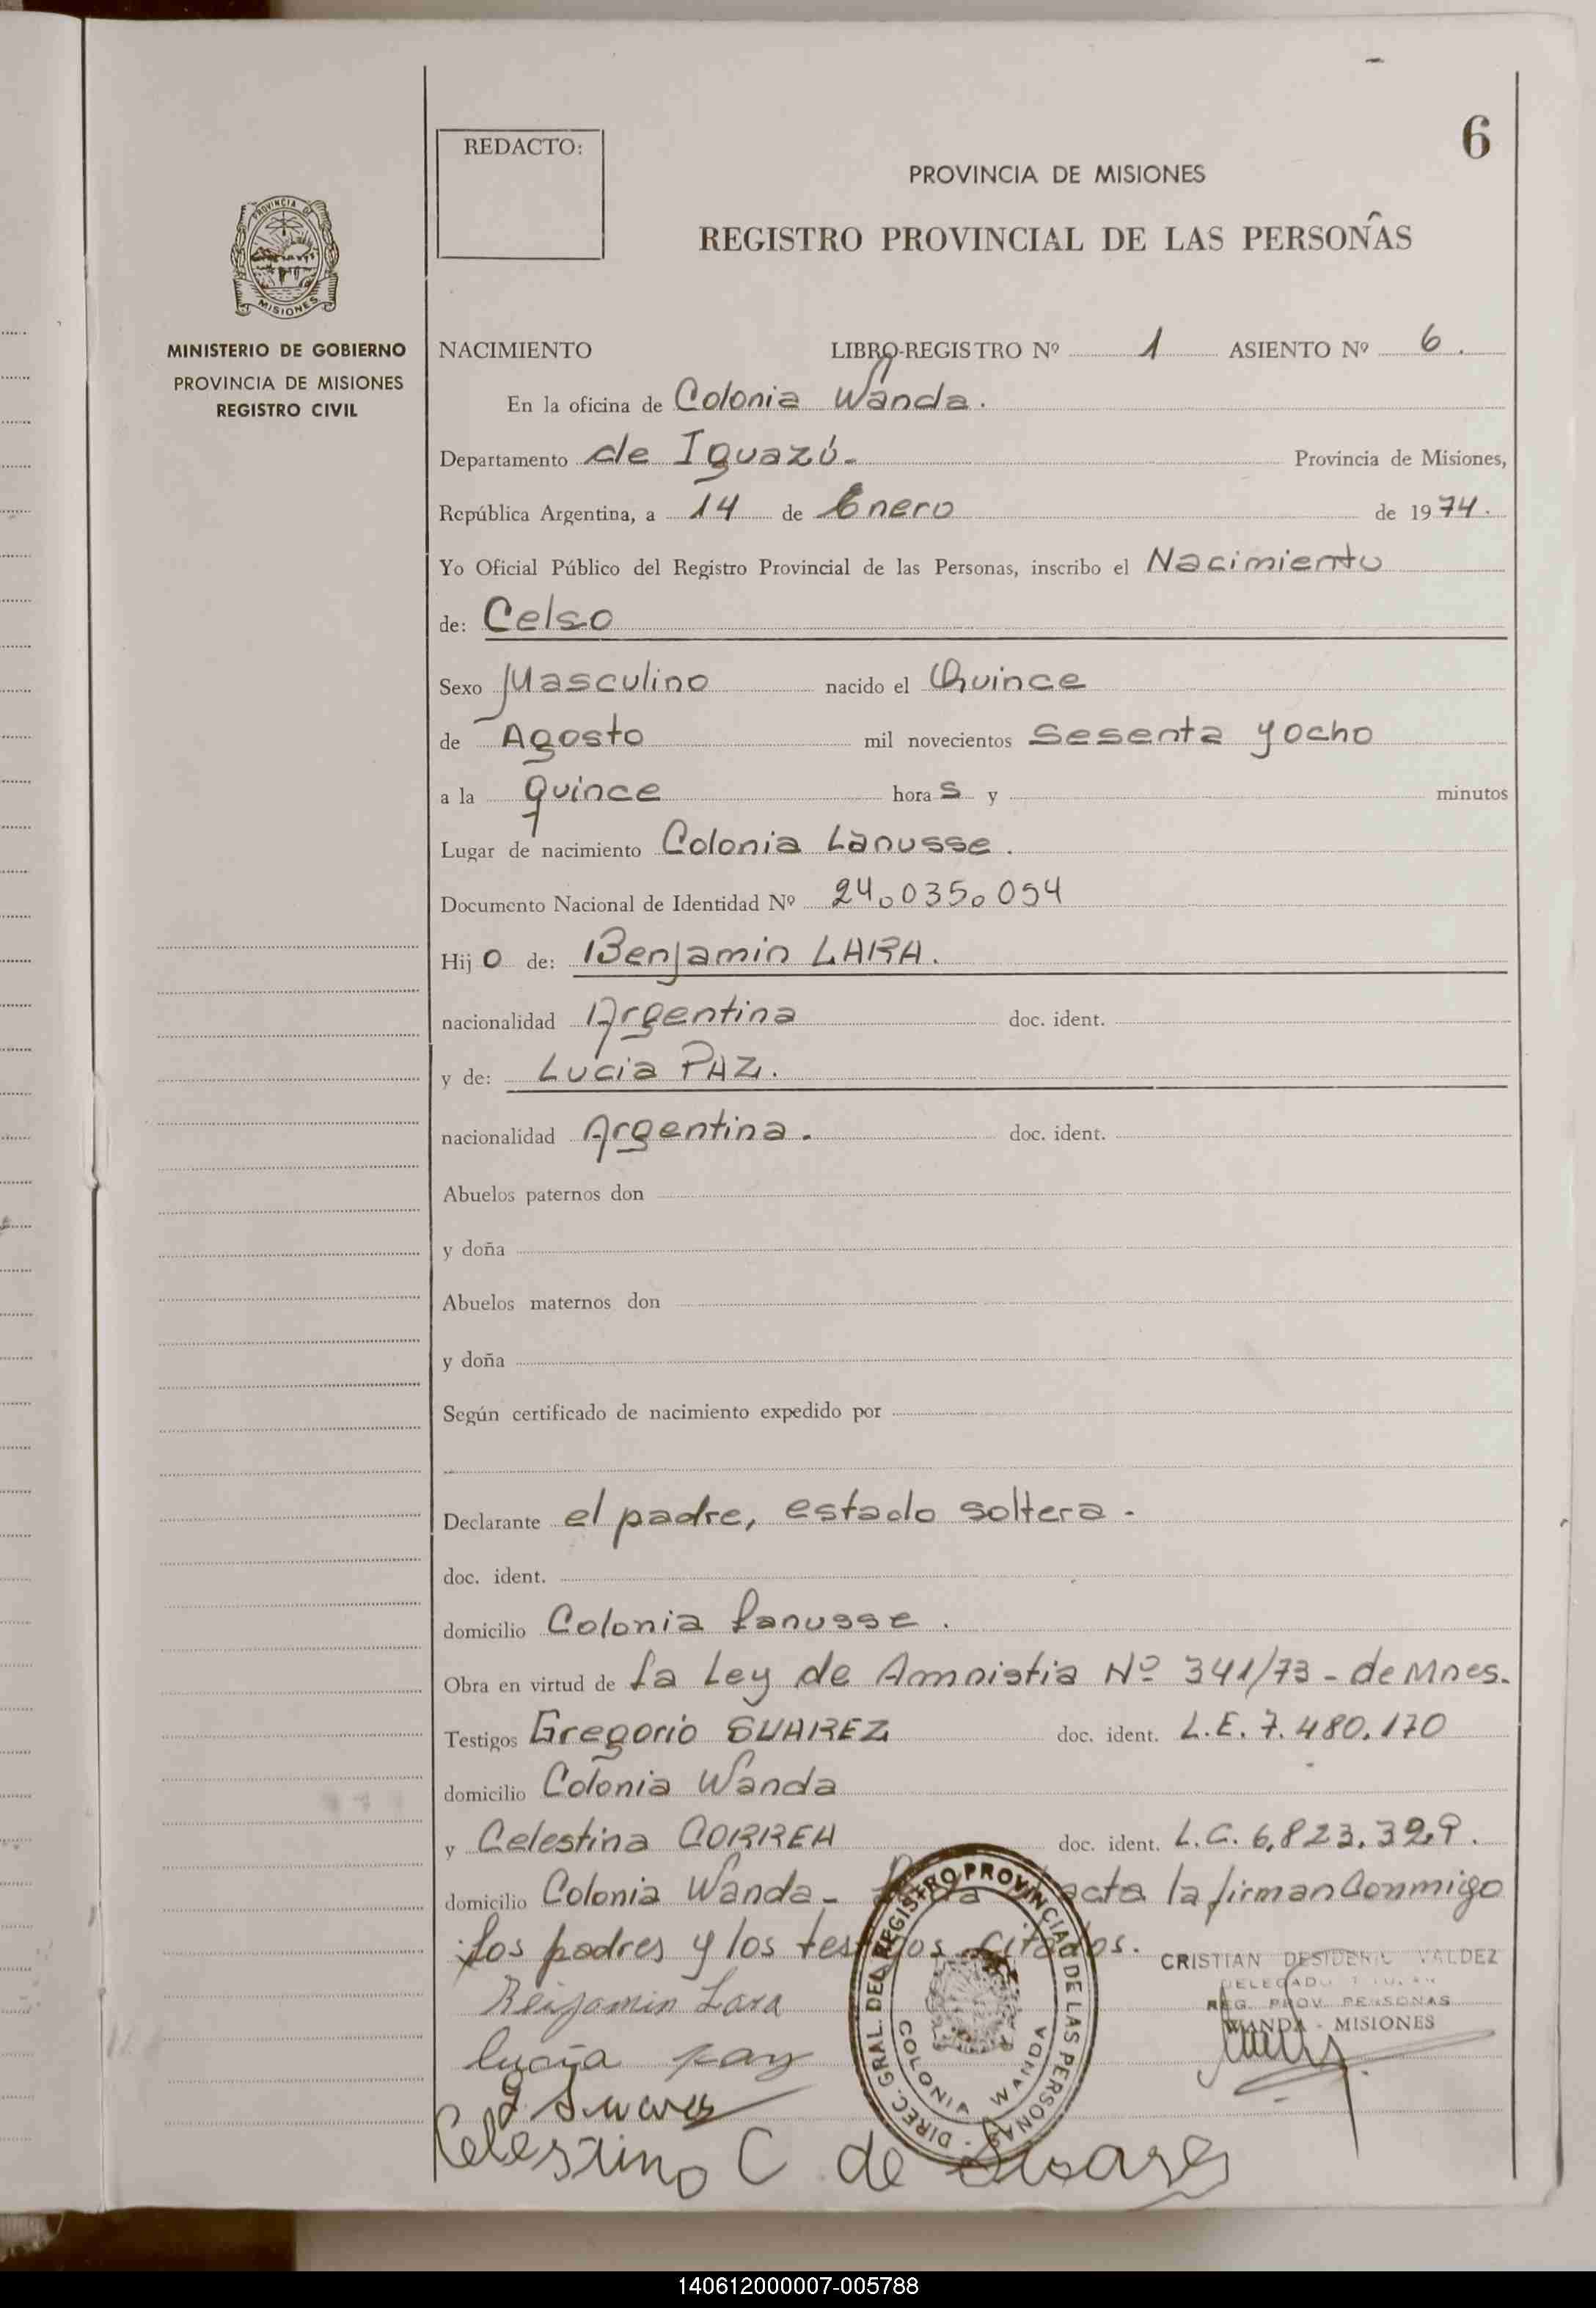 6
REDACTO:
PROVINCIA DE MISIONES
REGISTRO PROVINCIAL DE LAS PERSONAS
PROVINCIA DE
MISIONES
MINISTERIO DE GOBIERNO
PROVINCIA DE MISIONES
REGISTRO CIVIL
NACIMIENTO LIBRO-REGISTRO Nº 1 ASIENTO Nº 6.
En la oficina de Colonia Wanda.
Departamento de Iguazú- Provincia de Misiones,
República Argentina, a 14 de Enero de 1974.
Yo Oficial Público del Registro Provincial de las Personas, inscribo el Nacimiento
de: Celso
Sexo Masculino nacido el Quince
de Agosto mil novecientos Sesenta y ocho
a la quince hora s y minutos
Lugar de nacimiento Colonia Lanusse.
Documento Nacional de Identidad Nº 24.035.054
Hij o de: Benjamin LARA.
nacionalidad Argentina doc. ident.
y de: Lucia PAZ.
nacionalidad Argentina. doc. ident.
Abuelos paternos don
y doña
Abuelos maternos don
y doña
Según certificado de nacimiento expedido por
Declarante el padre, estado soltera.
doc. ident.
domicilio Colonia Lanusse.
Obra en virtud de La Ley de Amnistia Nº 341/73 - de Mnes.
Testigos Gregorio SUAREZ doc. ident. L.E. 7.480.170
domicilio Colonia Wanda
y Celestina CORREA doc. ident. L.C. 6.823.329.
domicilio Colonia Wanda- acta la firman Conmigo
Los padres y los testigos citados.
CRISTIAN DESIDERIO VALDEZ
REG. PROV. PERSONAS
WANDA - MISIONES
Benjamin Lara
lucia paz
Celestino C de Suarez
DIREC. GRAL. DEL REGISTRO PROVINCIAL DE LAS PERSONAS
COLONIA WANDA
140612000007-005788